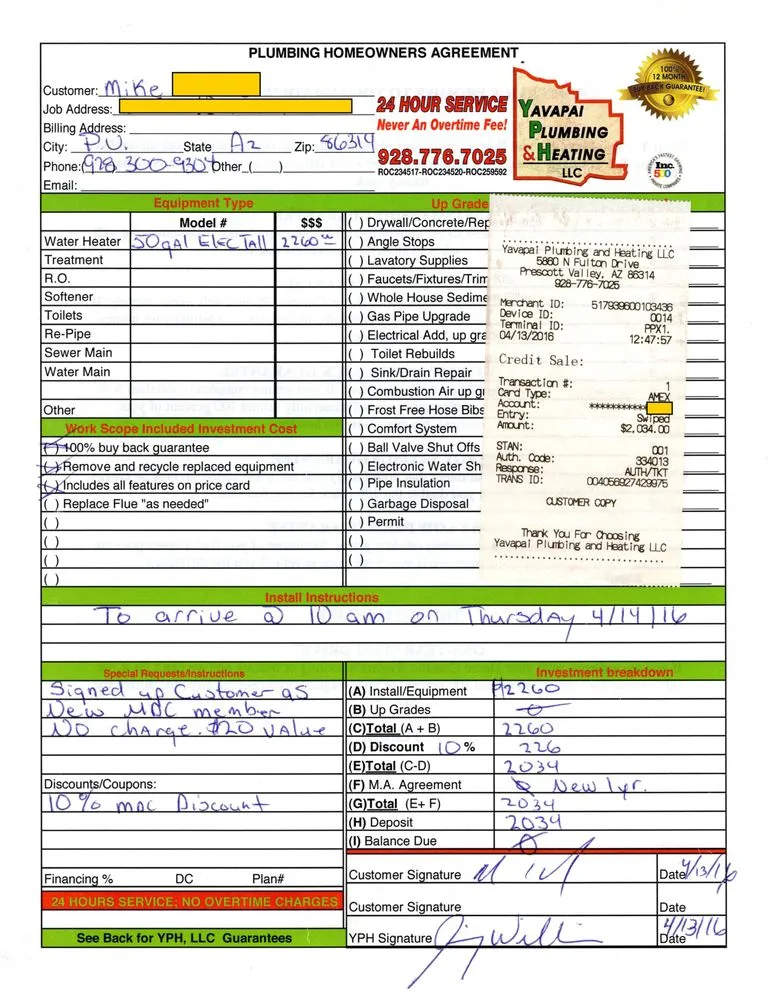 PLUMBING HOMEOWNERS AGREEMENT
Customer: Mike
Job Address:
Billing Address:
City: P.V. State Az Zip: 86314
Phone: (928 300-9304 Other ( )
Email:
24 HOUR SERVICE
Never An Overtime Fee!
928.776.7025
ROC234517-ROC234520-ROC259592
YAVAPAI
PLUMBING
& HEATING
LLC
100%
12 MONTH
BUY BACK GUARANTEE!
Inc.
500
Equipment Type
Model # $$$
Water Heater 50gAl Elec TAll 2260
Treatment
R.O.
Softener
Toilets
Re-Pipe
Sewer Main
Water Main
Other
Work Scope Included Investment Cost
( ) 100% buy back guarantee
( ) Remove and recycle replaced equipment
( ) Includes all features on price card
( ) Replace Flue "as needed"
( )
( )
( )
( )
Up Grade
( ) Drywall/Concrete/Rep
( ) Angle Stops
( ) Lavatory Supplies
( ) Faucets/Fixtures/Trim
( ) Whole House Sedime
( ) Gas Pipe Upgrade
( ) Electrical Add, up gra
( ) Toilet Rebuilds
( ) Sink/Drain Repair
( ) Combustion Air up gr
( ) Frost Free Hose Bibs
( ) Comfort System
( ) Ball Valve Shut Offs
( ) Electronic Water Sh
( ) Pipe Insulation
( ) Garbage Disposal
( ) Permit
( )
( )
Yavapai Plumbing and Heating LLC
5860 N Fulton Drive
Prescott Valley, AZ 86314
928-776-7025
Merchant ID: 517939600103436
Device ID: 0014
Terminal ID: PPX1.
04/13/2016 12:47:57
Credit Sale:
Transaction #: 1
Card Type: AMEX
Account: ***********
Entry: Swiped
Amount: $2,034.00
STAN: 001
Auth. Code: 334013
Response: AUTH/TKT
TRANS ID: 004056927429975
CUSTOMER COPY
Thank You For Choosing
Yavapai Plumbing and Heating LLC
Install Instructions
To arrive @ 10 am on Thursday 4/14/16
Special Requests/Instructions
Signed up Customer as
New MDC member
NO chArge. $20 VAlue
Discounts/Coupons:
10% mac Discount
Financing % DC Plan#
24 HOURS SERVICE; NO OVERTIME CHARGES
See Back for YPH, LLC Guarantees
Investment breakdown
(A) Install/Equipment $2260
(B) Up Grades
(C)Total (A + B) 2260
(D) Discount 10 % 226
(E)Total (C-D) 2034
(F) M.A. Agreement New 1yr.
(G)Total (E+ F) 2034
(H) Deposit 2034
(I) Balance Due
Customer Signature Date 4/13/16
Customer Signature Date
YPH Signature Date 4/13/16